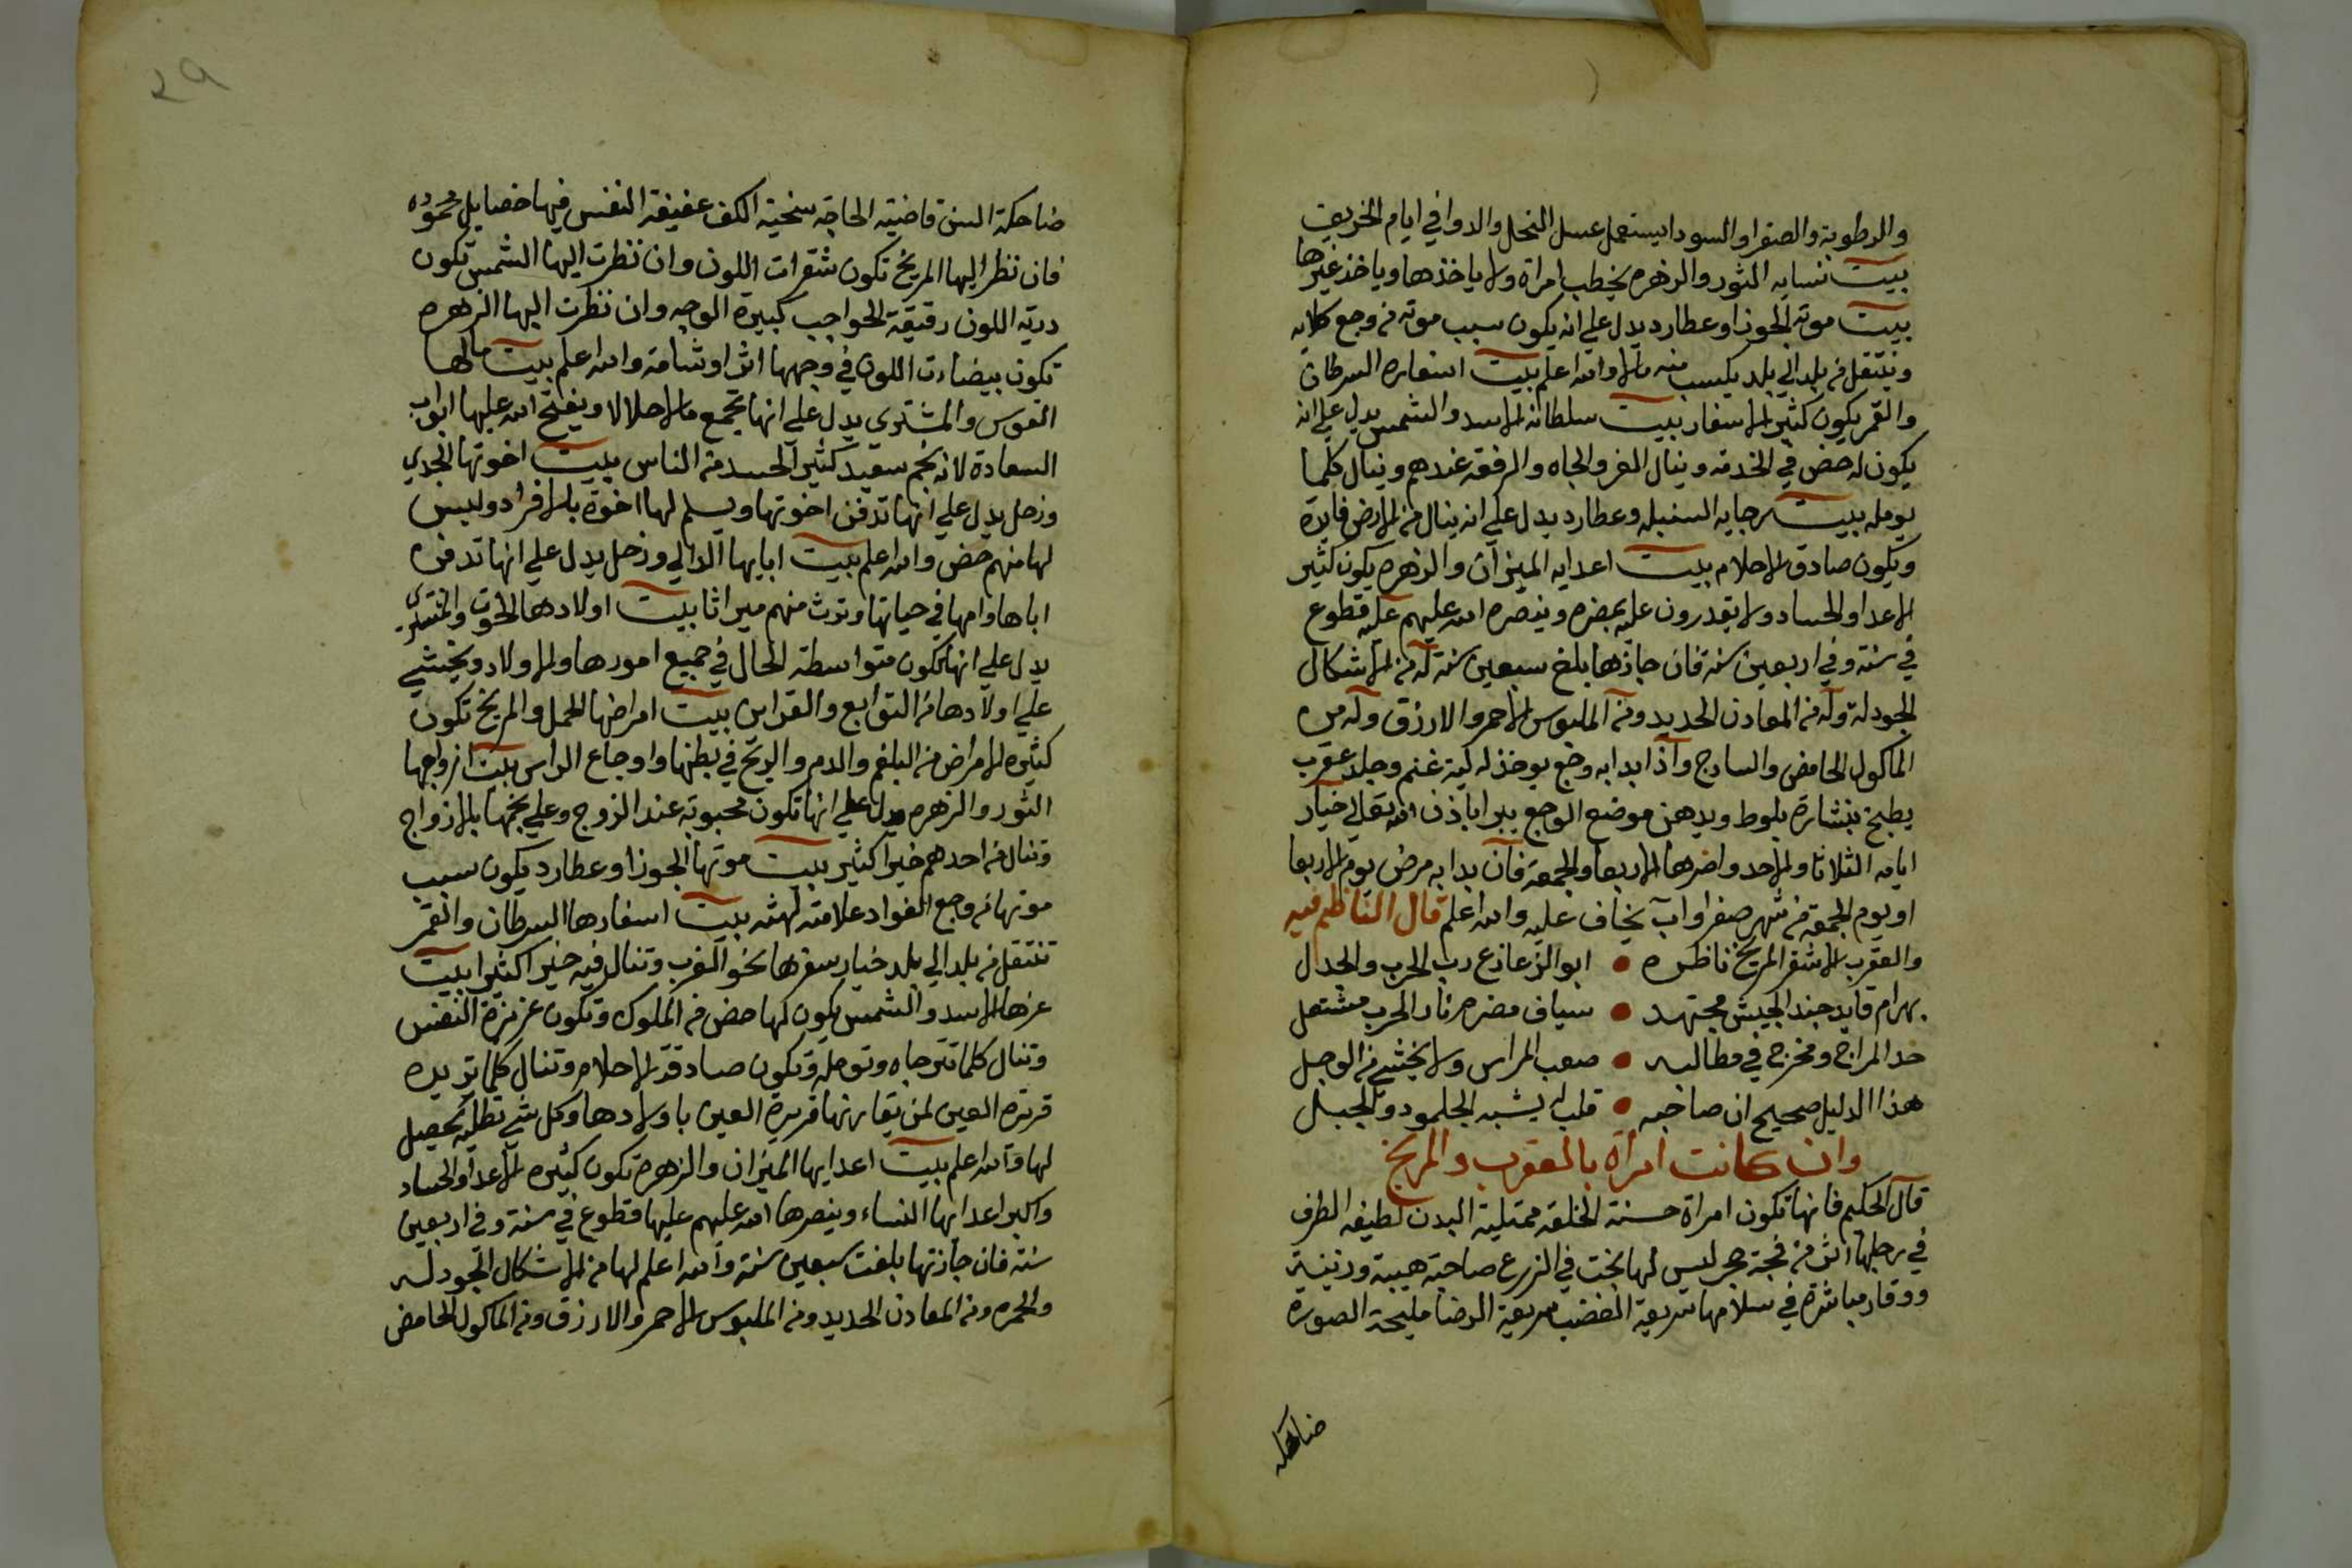 والرطوبة والصفرا والسودا يستعمل عسل النحل والدوا في ايام الخريف
بيت نسايه الثور والزهره يخطب امراة ولا ياخذها وياخذ غيرها
بيت موته الجوزا وعطارد يدل علي انه يكون سبب موته من وجع كلايه
وينتقل من بلد الي بلد يكسب منه مالا والله اعلم بيت اسفاره السرطان
والقمر يكون كثير الاسفار بيت سلطانه الاسد والشمس يدل علي انه
يكون له حض في الخدمه وينال العز والجاه والرفقه عندهم وينال كلما
يومله بيت رجايه السنبله وعطارد يدل علي انه ينال من الارض فايدة
ويكون صادق الاحلام بيت اعدايه الميزان والزهره يكون كثير
الاعدا والحساد ولا يقدرون عليه بمضره وينصره الله عليهم عليه قطوع
في سنة وفي اربعين سنة فان جازها بلغ سبعين سنة له من الاشكال
الجودلة وله من المعادن الحديد ومن الملبوس الاحمر والازرق وله من
الماكول الحامض والسادج واذا بدا به وجع يوخذ له لية غنم وجلد عقرب
يطبخ بنشارة بلوط ويدهن موضع الوجع يبرا باذن الله تعالي خيار
ايامه الثلاثا والاحد واضرها الاربعا والجمعة فان بدا به مرض يوم الاربعا
او يوم الجمعة من شهر صفر او اب يخاف عليه والله اعلم قال الناظم فيه
والعقرب الاشقر المريخ ناظره • ابو الزعازع رب الحرب والجدال
بهرام قايد جند الجيش مجتهد • سياف مضرم نار الحرب مشتعل
حد المزاج ومخرج في مطالبه • صعب المراس ولا يخشي من الوجل
هذا الدليل صحيح ان صاحبه • قلب له يشبه الجلمود والجبل
وان كانت امراة بالعقرب والمريخ
قال الحكيم فانها تكون امراة حسنة الخلقه ممتلية البدن لطيفه الطرف
في رجلها اثر من فجة حجر ليس لها بخت في الزرع صاحبة هيبة وزينة
ووقار مباشرة في سلامها سريعة الغضب سريعة الرضا مليحة الصوره
ضاحكة
٢٩
ضاحكة السن قاضيته الحاجه سخية الكف عفيفة النفس فيها خصايل محموده
فان نظر اليها المريخ تكون شقرات اللون وان نظرت اليها الشمس تكون
درية اللون رقيقة الحواجب كبيرة الوجه وان نظرت اليها الزهره
تكون بيضاءت اللون في وجهها اثر او شامة والله اعلم بيت مالها
القوس والمشتري يدل علي انها تجمع مالا حلالا ويفتح الله عليها ابواب
السعادة لانه نجم سعيد كثير الحسد من الناس بيت اخوتها الجدي
وزحل يدل علي انها تدفن اخوتها ويسلم لها اخوة بالافراد وليس
لها منهم حض والله اعلم بيت ابايها الدالي وزحل يدل علي انها تدفن
اباها وامها في حياتها وتورث منهم ميراثا بيت اولادها الحوت والمشتري
يدل علي انها تكون متواسطة الحال في جميع امورها والاولاد ويخشي
علي اولادها من التوابع والقراين بيت امراضها الحمل والمريخ تكون
كثيره الامراض من البلغم والدم والريح في بطنها واوجاع الراس بيت ازواجها
الثور والزهره يدل علي انها تكون محبوبة عند الزوج وعلي نجمها بالازواج
وتنال من احدهم خيرا كثير بيت موتها الجوزا وعطارد يكون سبب
موتها من وجع الفواد علامته لهثه بيت اسفارها السرطان والقمر
تنتقل من بلد الي بلد خيار سفرها نحو الغرب وتنال فيه خيرا كثيرا بيت
عزها الاسد والشمس يكون لها حض من الملوك وتكون عزيزة النفس
وتنال كلما تترجاه وتومله وتكون صادقة الاحلام وتنال كلما تريده
قريرة العين لمن يقارنها قريرة العين باولادها وكل شي تطلبه يحصل
لها والله اعلم بيت اعدايها الميزان والزهرة تكون كثيره الاعدا والحساد
واكبر اعدايها النساء وينصرها الله عليهم عليها قطوع في سنة وفي اربعين
سنة فان جازتها بلغت سبعين سنة والله اعلم لها من الاشكال الجودله
والحمره ومن المعادن الحديد ومن الملبوس الاحمر والازرق ومن الماكول الحامض